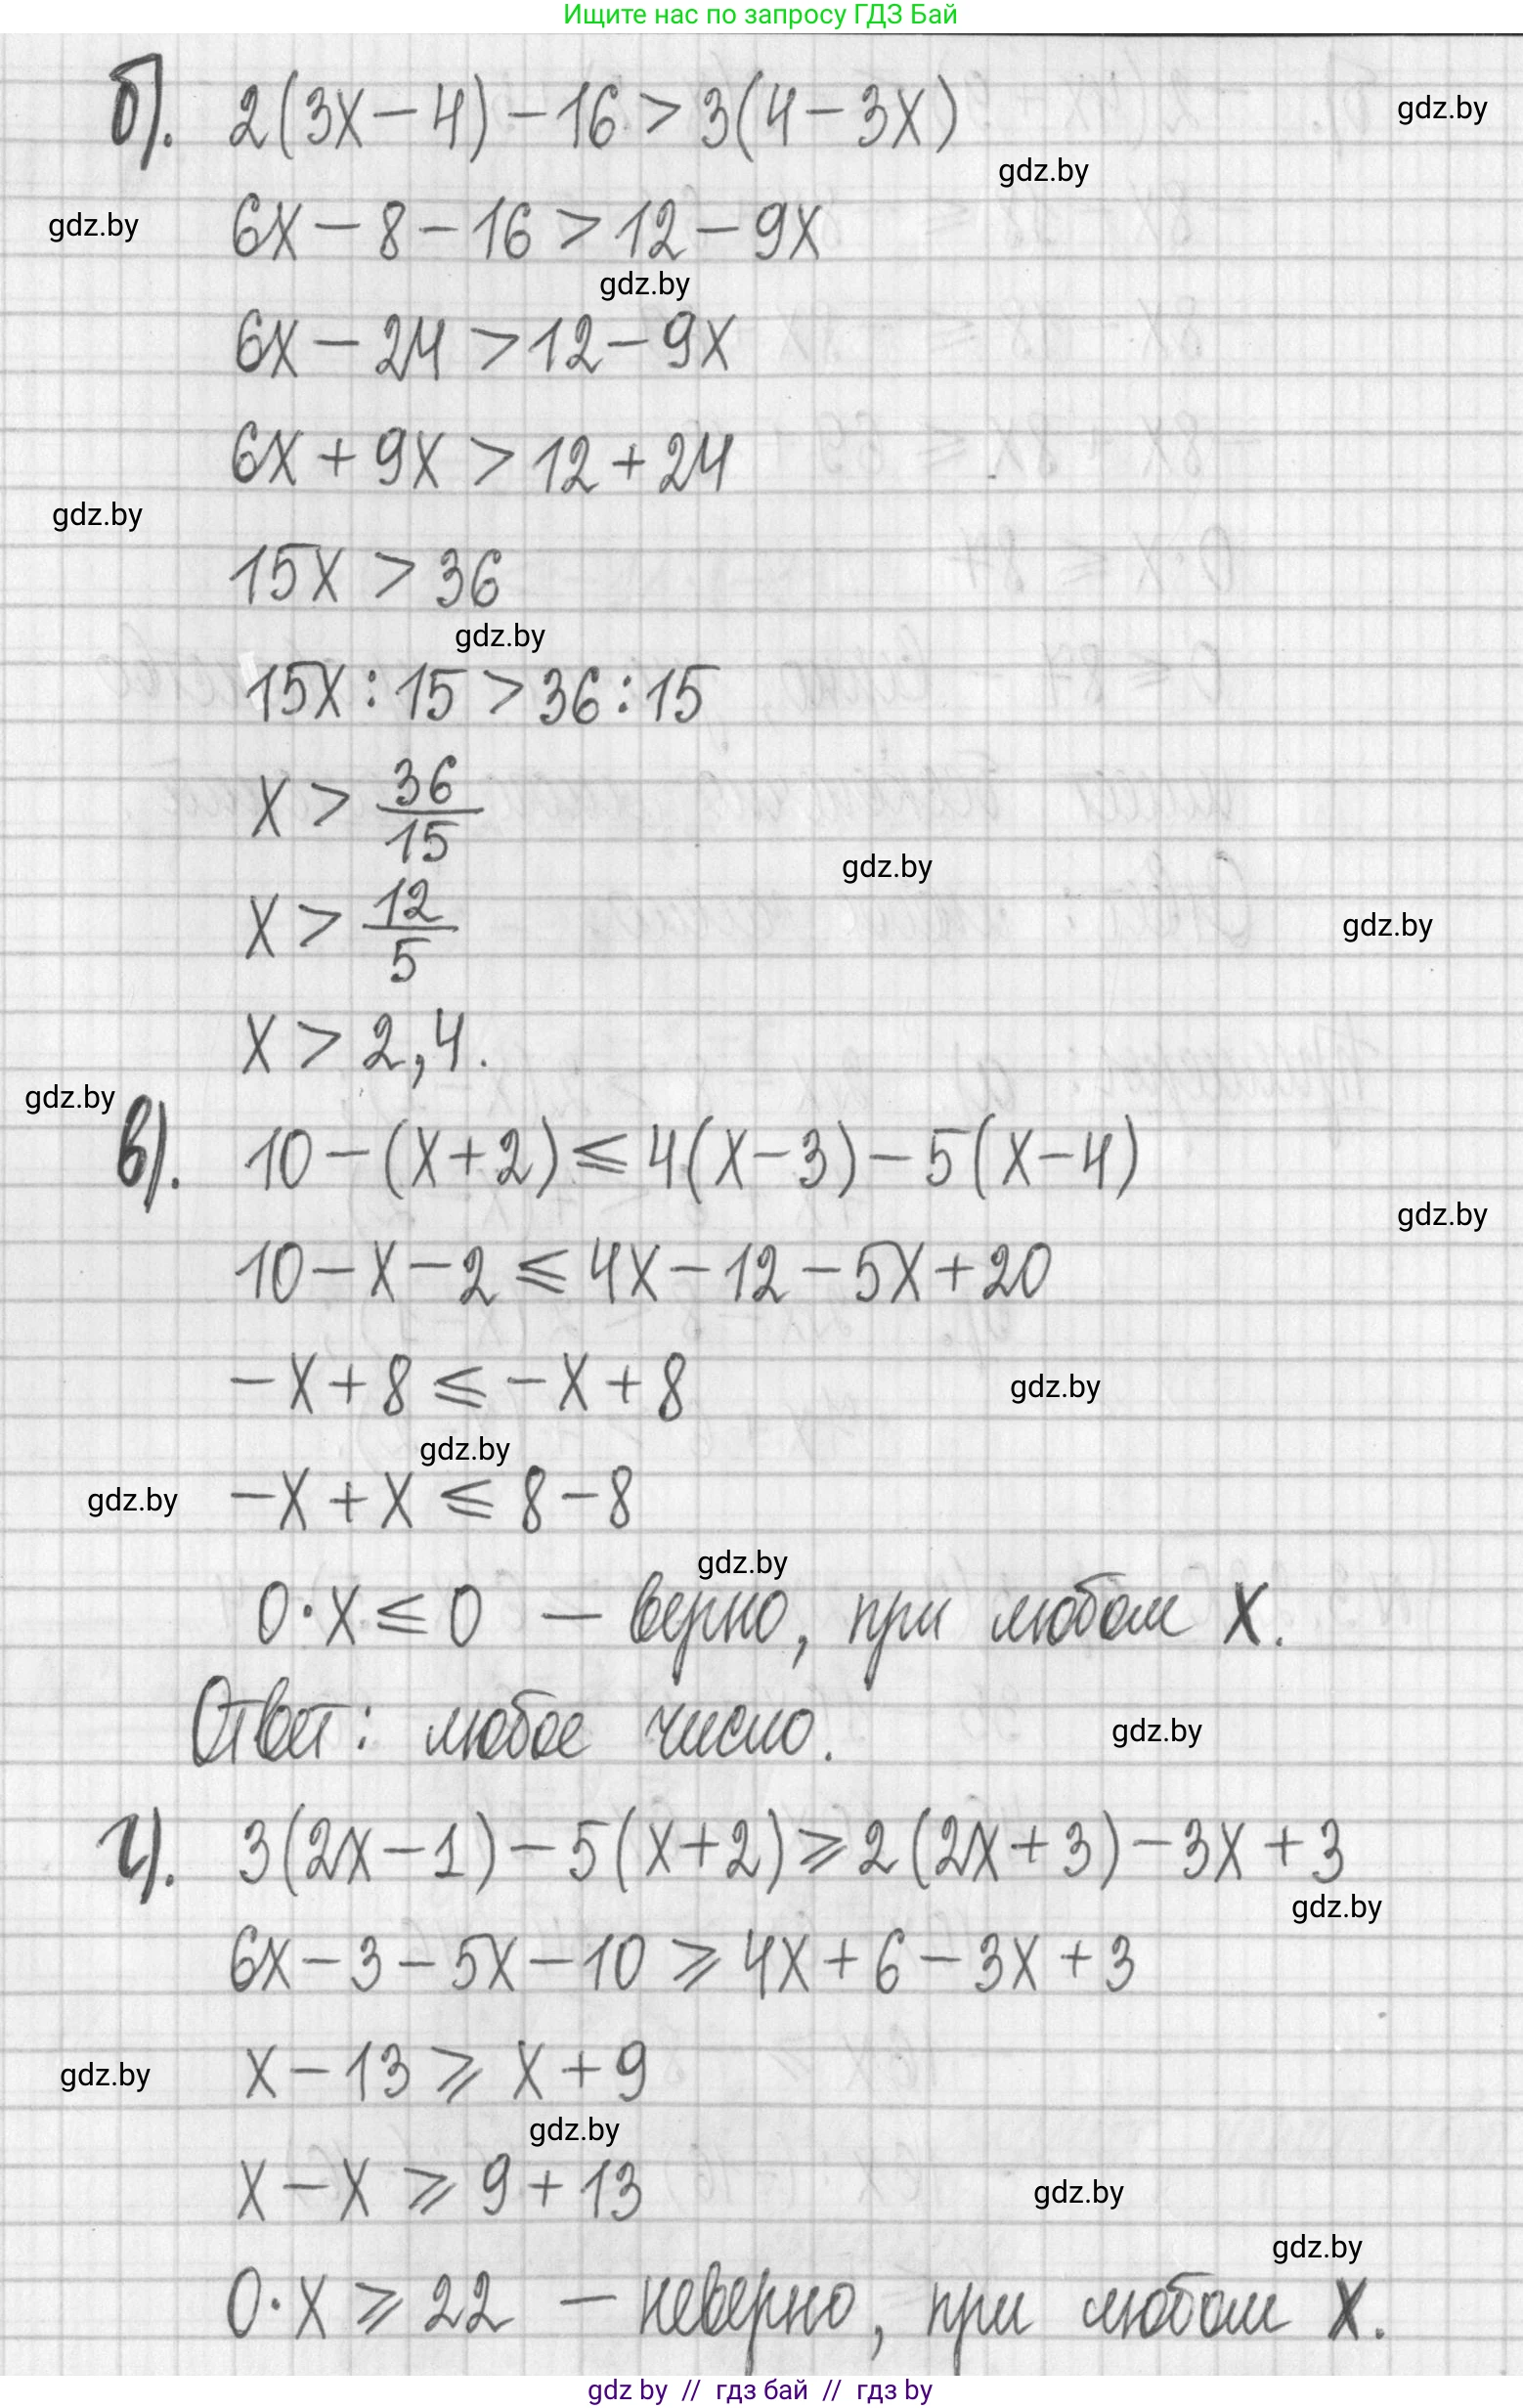 Ищите нас по запросу ГДЗ Бай
б). 2(3x-4)-16>3(4-3x)
gdz.by
gdz.by
gdz.by
6x-8-16>12-9x
gdz.by
6x-24>12-9x
6x+9x>12+24
gdz.by
15x>36
gdz.by
15x:15>36:15
x>36/15
gdz.by
x>12/5
gdz.by
x>2,4.
gdz.by
в). 10-(x+2)≤4(x-3)-5(x-4)
gdz.by
10-x-2≤4x-12-5x+20
-x+8≤-x+8
gdz.by
gdz.by
gdz.by
-x+x≤8-8
gdz.by
0·x≤0 — верно, при любом x.
Ответ: любое число.
gdz.by
г). 3(2x-1)-5(x+2)⩾2(2x+3)-3x+3
gdz.by
6x-3-5x-10⩾4x+6-3x+3
x-13⩾x+9
gdz.by
gdz.by
x-x⩾9+13
gdz.by
gdz.by
0·x⩾22 — неверно, при любом x.
gdz by // гдз бай // гдз by